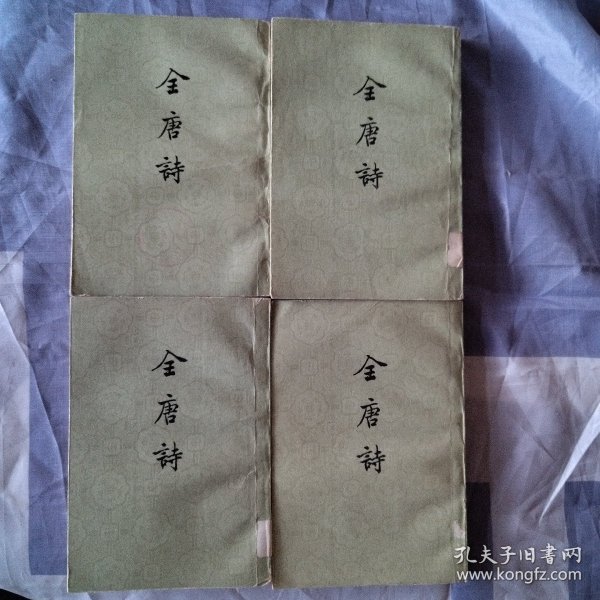 全唐詩
全唐詩
全唐詩
全唐詩
孔夫子旧書网
www.kongfz.com